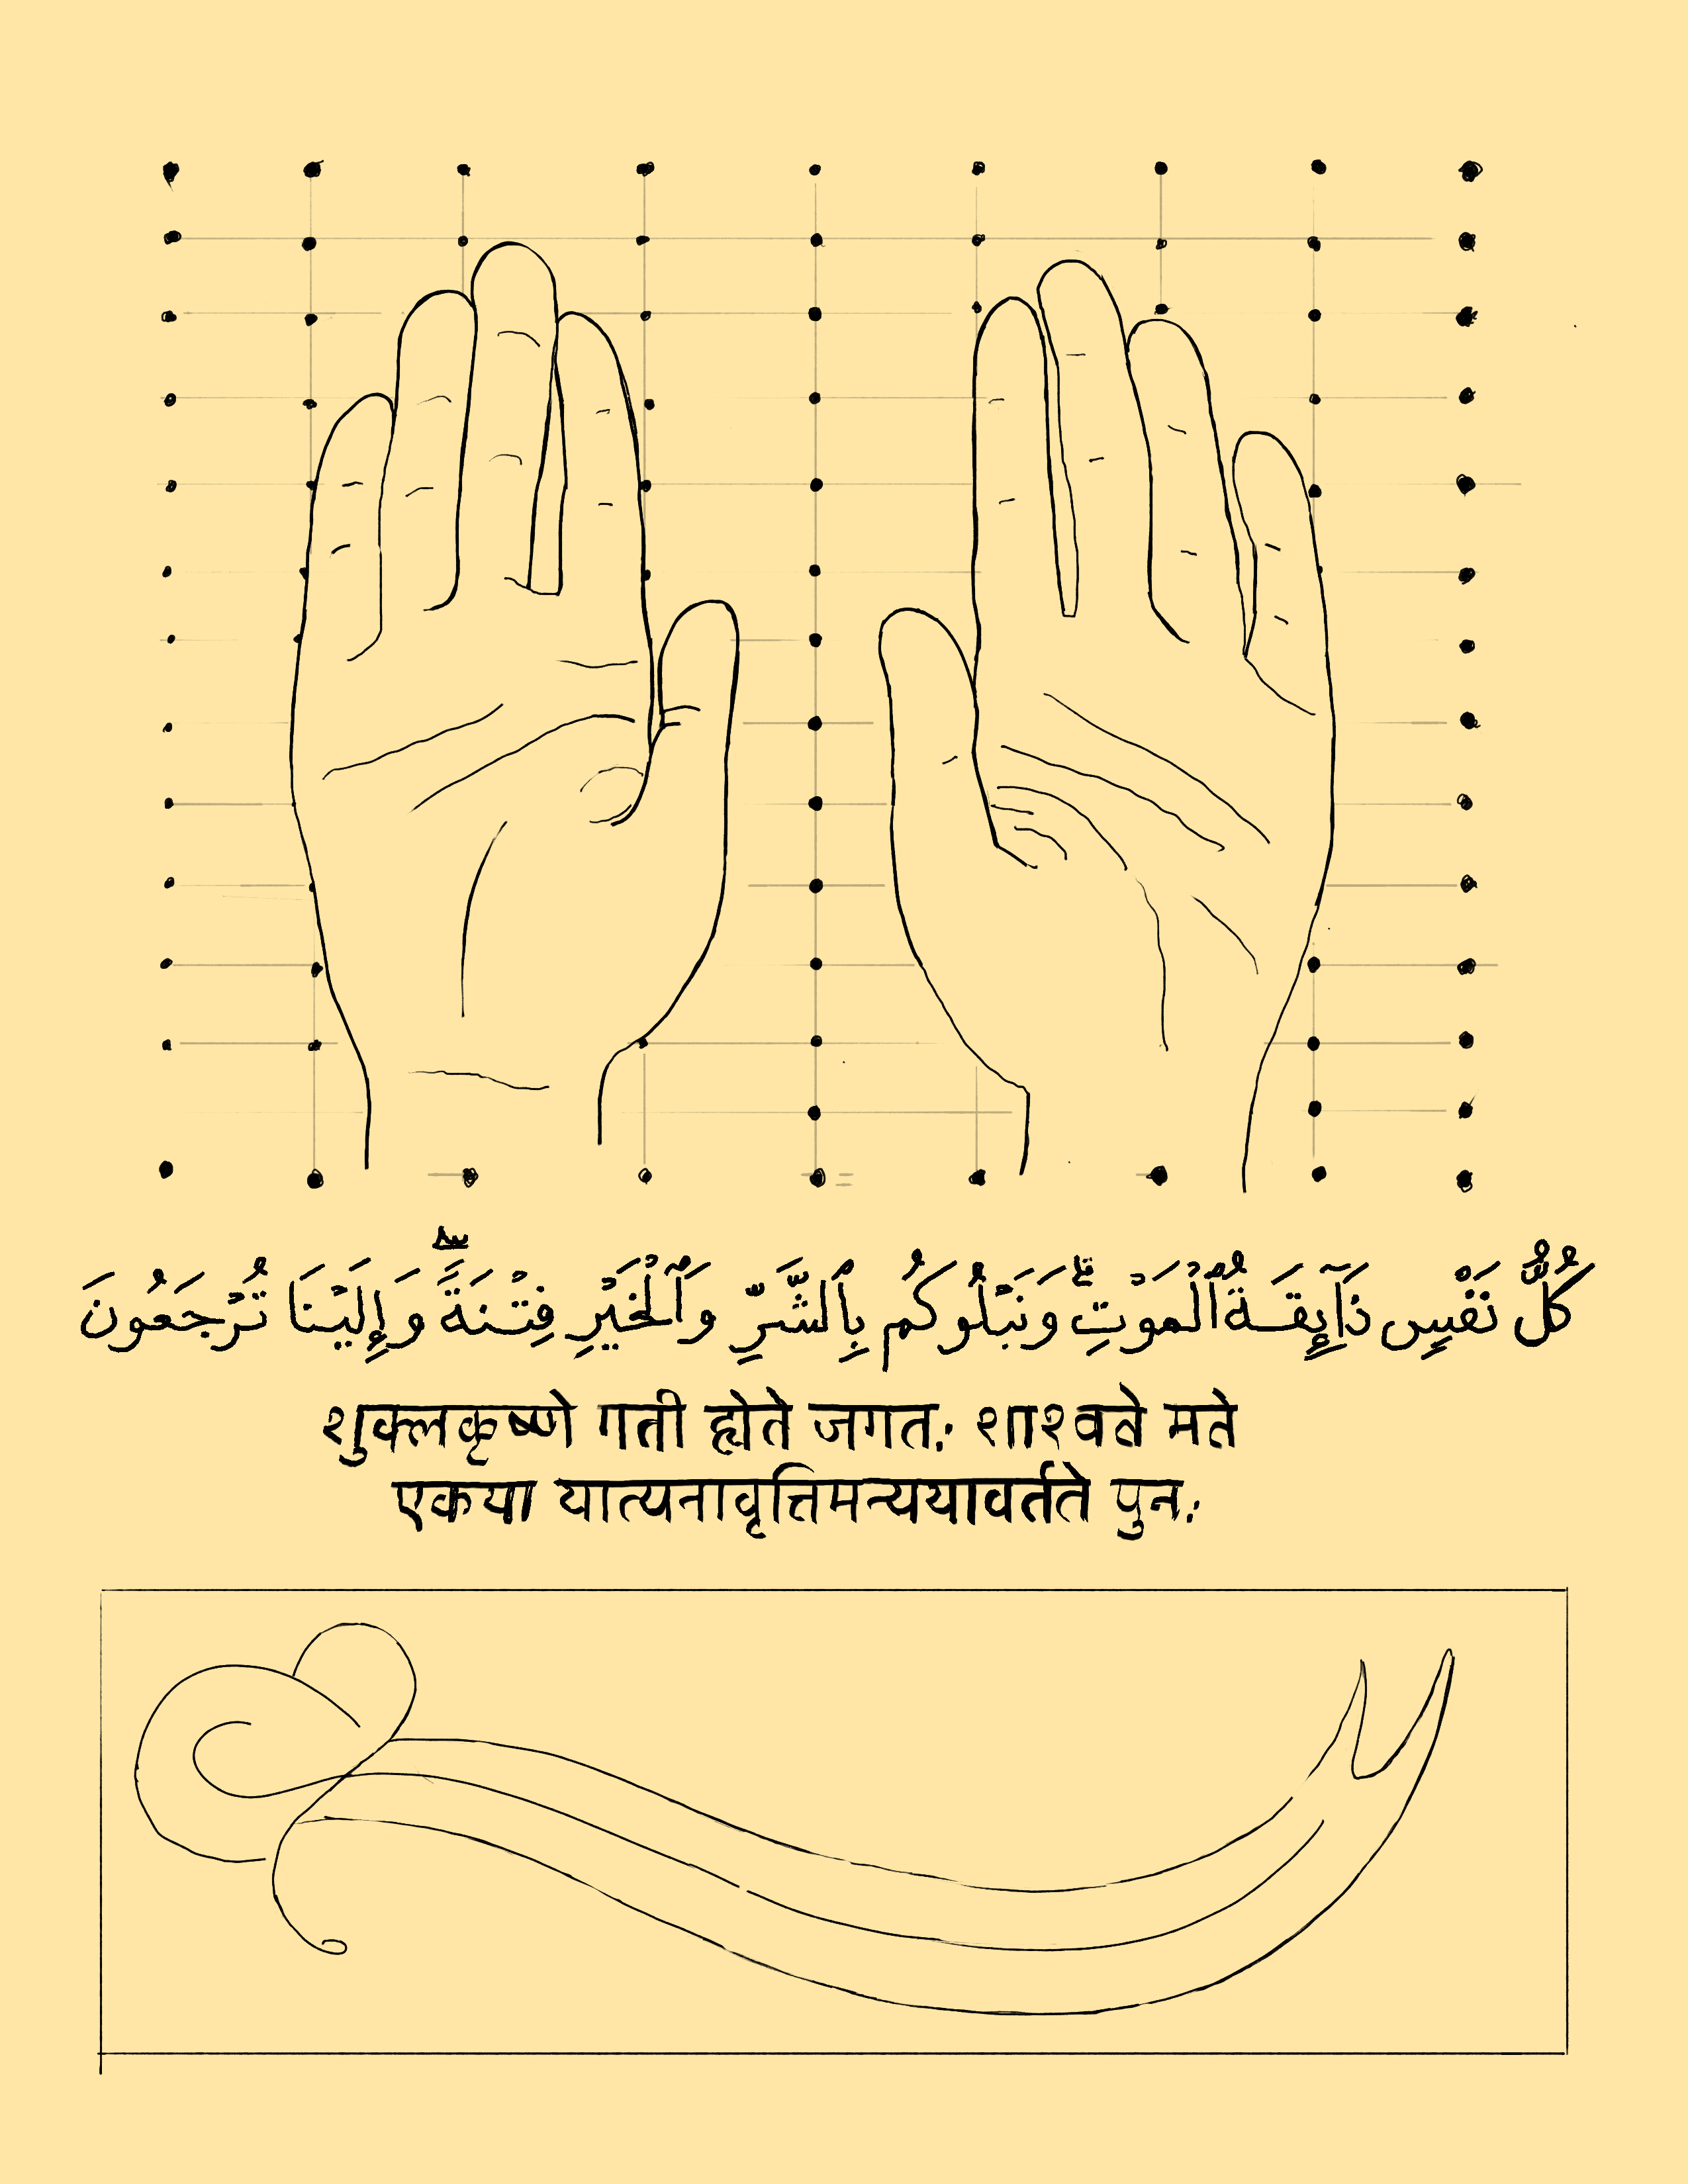 كُلُّ نَفْسٍ ذَآئِقَةُ ٱلْمَوْتِ ۗ وَنَبْلُوكُم بِٱلشَّرِّ وَٱلْخَيْرِ فِتْنَةً ۖ وَإِلَيْنَا تُرْجَعُونَ
शुक्लकृष्णे गती ह्येते जगतः शाश्वते मते
एकया यात्यनावृत्तिमन्ययावर्तते पुनः